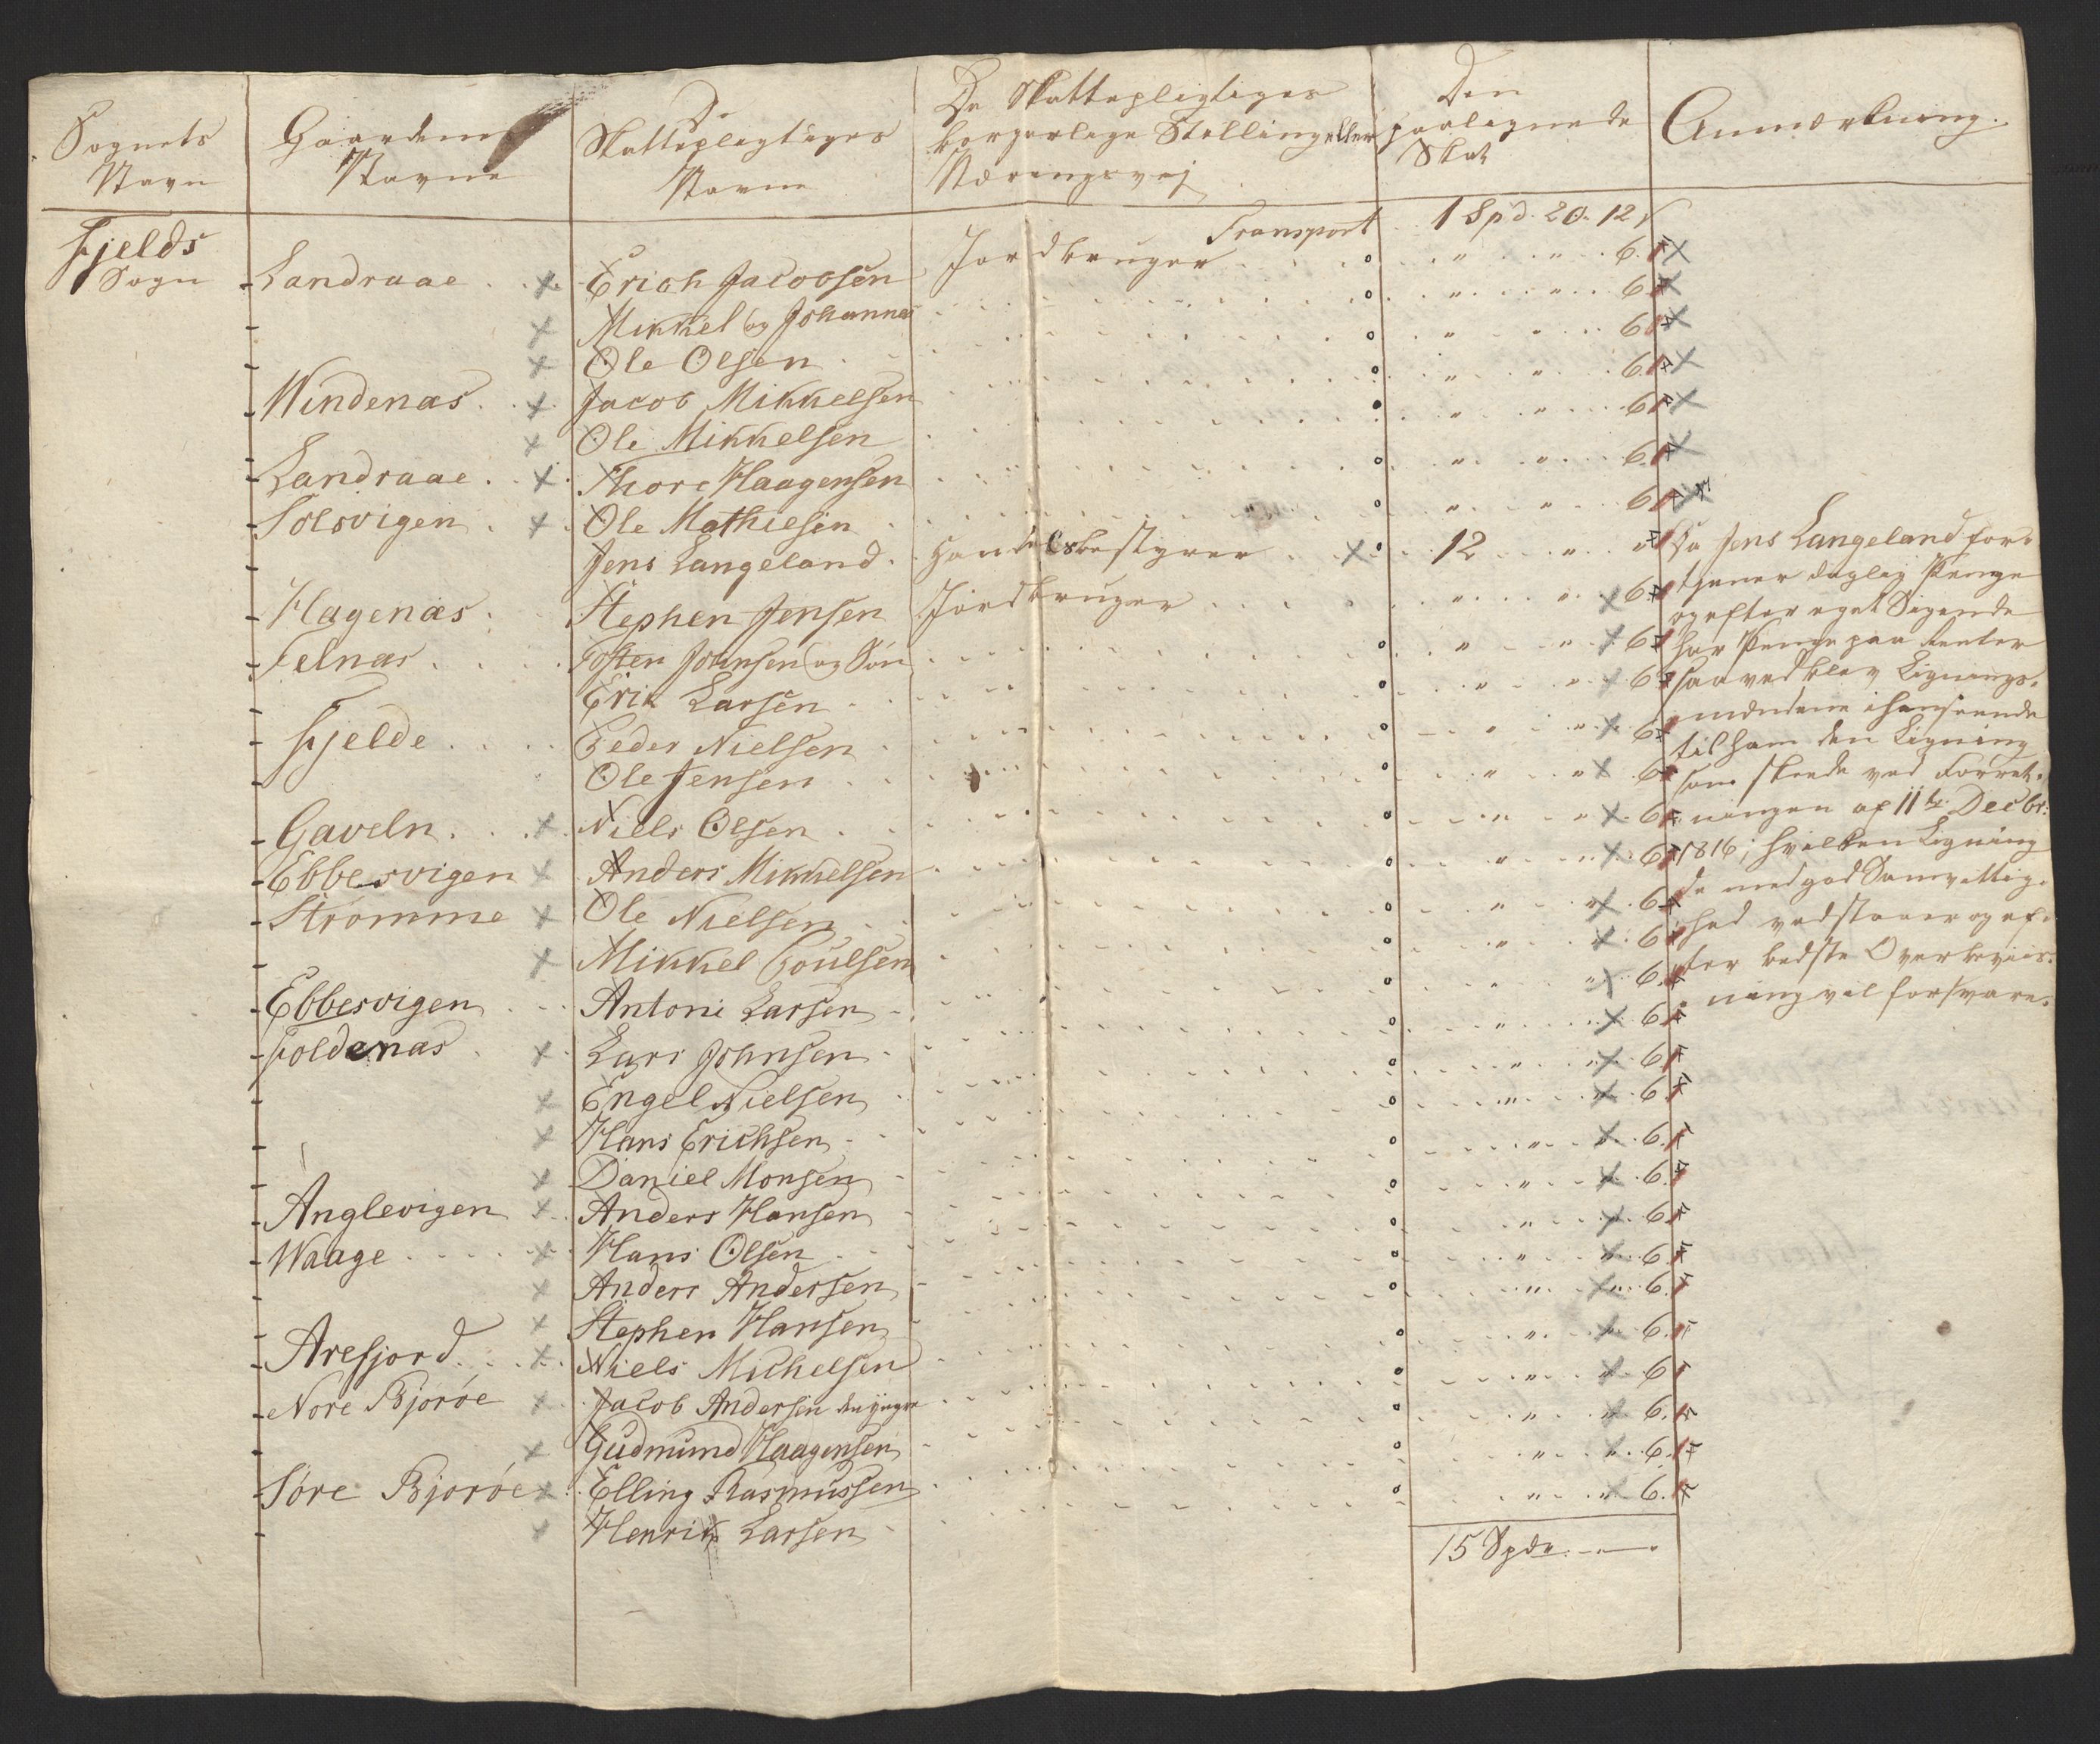 Sognets Navn | Gaardens Navne | De Skattepligtiges Navne | De Skattepligtiges borgerlige Stilling eller Næringsvej | Den paalignede Skat | Anmærkning.
Transport 1 Spd. 20. 12
Fjelds Sogn | Landraae | Erich Jacobsen | Jordbruger | " " 6
- | Mikkel og Johannes | " " 6
- | Ole Olsen | " " 6
Windenæs | Jacob Mikkelsen | " " 6
- | Ole Mikkelsen | " " 6
Landraae | Thore Haagensen | " " 6
Solsvigen | Ole Mathiesen | " " 6
- | Jens Langeland | Handelsbestyrer | 12 " "
Hagenæs | Stephen Jensen | Jordbruger | " " 6
Felnæs | Tosten Johnsen og Søn | " " 6
- | Erik Larsen | " " 6
Fjelde | Peder Nielsen | " " 6
- | Ole Jensen | " " 6
Gaveln | Niels Olsen | " " 6
Ebbesvigen | Anders Mikkelsen | " " 6
Strømme | Ole Nielsen | " " 6
- | Mikkel Poulsen | " " 6
Ebbesvigen | Antoni Larsen | " " 6
Foldenæs | Lars Johnsen | " " 6
- | Engel Nielsen | " " 6
- | Hans Erichsen | " " 6
- | Daniel Monsen | " " 6
Anglevigen | Anders Hansen | " " 6
Waage | Hans Olsen | " " 6
- | Anders Andersen | " " 6
- | Stephen Hansen | " " 6
Arefjord | Niels Michelsen | " " 6
Nore Bjorøe | Jacob Andersen den yngre | " " 6
- | Gudmund Haagensen | " " 6
Søre Bjorøe | Elling Rasmussen | " " 6
- | Henrik Larsen | " " 6
15 Spdr.
Da Jens Langeland for-
tjener daglig Penge
og efter eget Sigende
har Penge paa Renter
saa vedblev Lignings-
mændene i henseende
til ham den Ligning
som skeede ved Forret-
ningen af 11te Decbr:
1816; hvilken Ligning
de med god Samvittig-
hed vedstaaer og ef-
ter bedste Overbeviis-
ning vil forsvare.